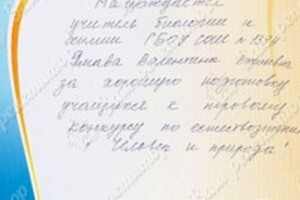 Награждается
учитель биологии и
химии ГБОУ СОШ № 1394
Валентина
за хорошую подготовку
учащихся к игровому
конкурсу по естествознанию
"Человек и природа"